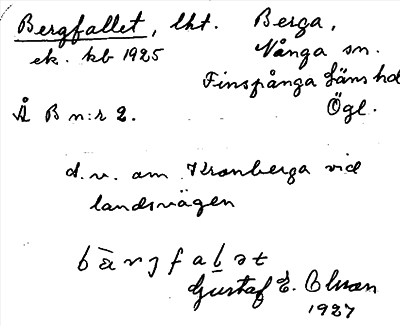 Bergfallet, lht. Berga,
ek. kb 1925 Vånga sn.
Finspånga läns hd
Å B n:r 2. Ögl.
d.v. om Kronberga vid
landsvägen
bärjfalət
Gustaf E. Olsson
1927